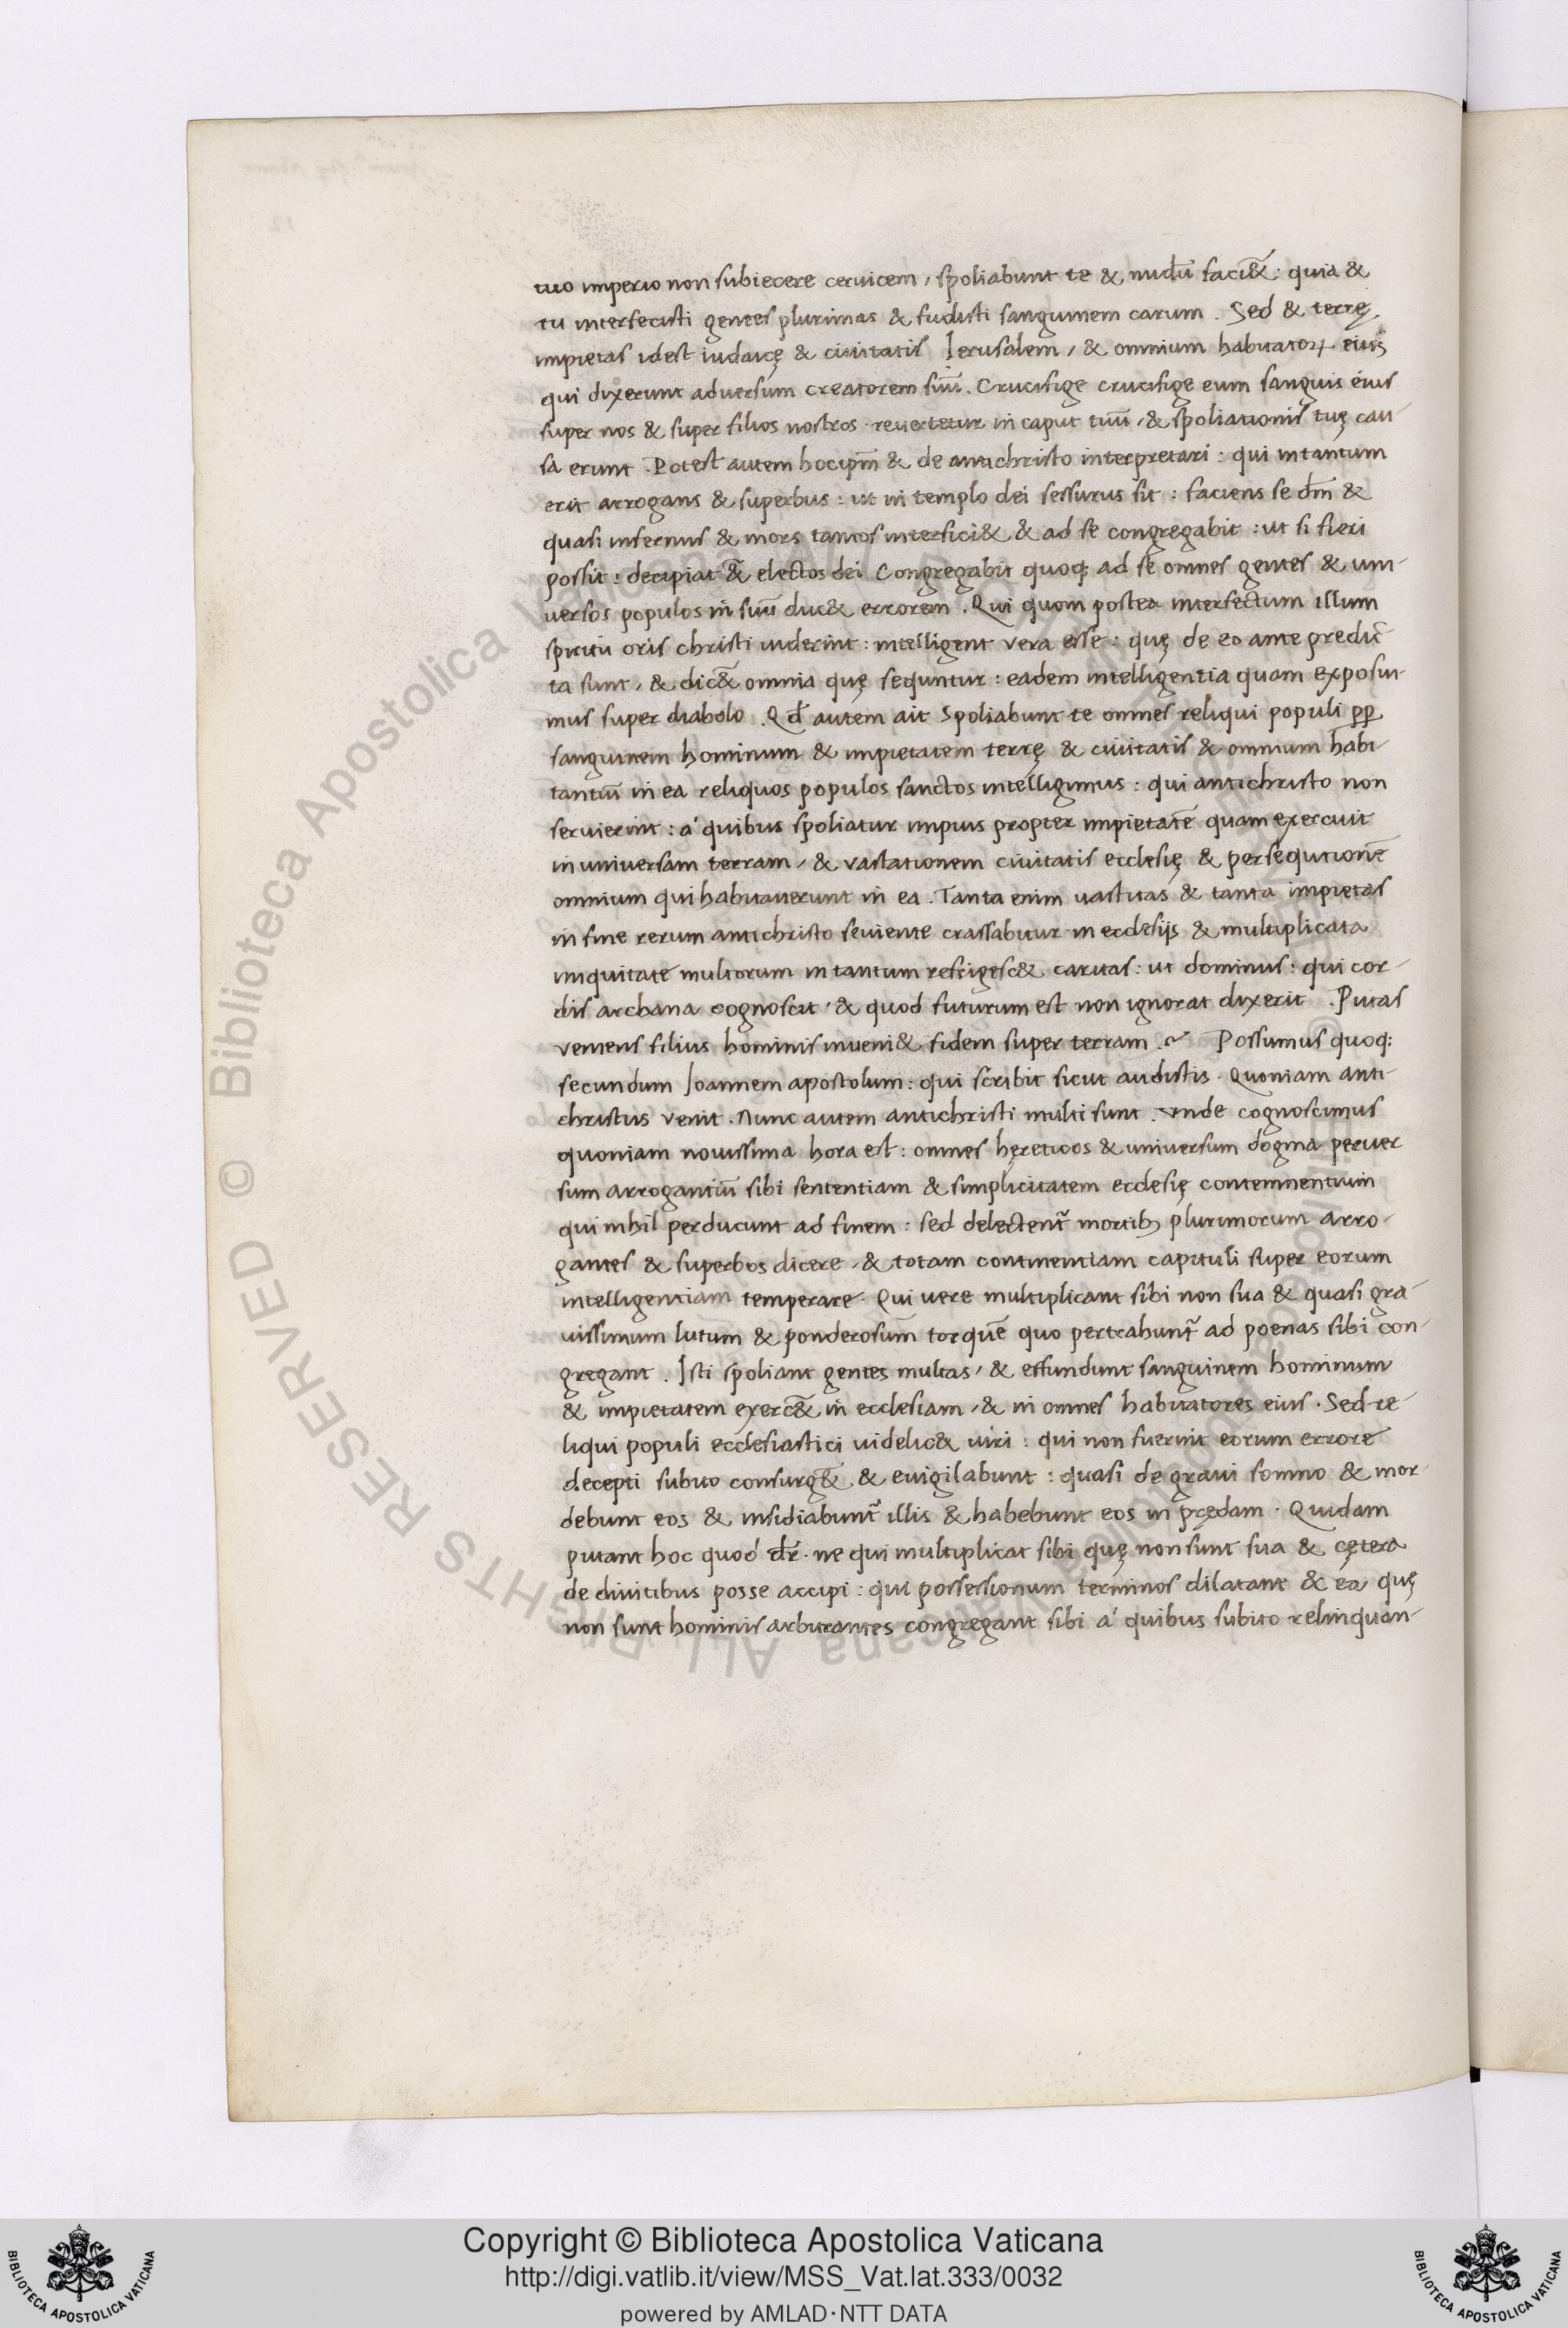 tuo imperio non subiecere ceruicem, spoliabunt te & nudū faci&̄: quia &
tu interfecisti gentes plurimas & fudisti sanguinem earum. Sed & terrę
impietas idest iudaicę & ciuitatis Ierusalem, & omnium habitatoꝝ eius
qui dixerunt aduersum creatorem suū. Crucifige crucifige eum sanguis eius
super nos & super filios nostros. reuertetur in caput tuū, & spoliationis tuę cau-
sa erunt. Potest autem hoc ipm̄ & de antichristo interpretari: qui in tantum
erit arrogans & superbus: ut in templo dei sessurus sit: faciens se dm̄ &
quasi infernus & mors tantos interfici& & ad se congregabit: ut si fieri
possit: decipiat &̄ electos dei Congregabit quoq; ad se omnes gentes & uni-
uersos populos in suū duc& errorem. Qui quom postea interfectum illum
spiritu oris christi uiderint: intelligent vera esse: quę de eo ante predic-
ta sunt, & dic&̄ omnia quę sequntur: eadem intelligentia quam exposui-
mus super diabolo. Qd̄ autem ait Spoliabunt te omnes reliqui populi ꝓꝑ
sanguinem hominum & impietatem terrę & ciuitatis & omnium habi-
tantiū in ea reliquos populos sanctos intelligimus: qui antichristo non
seruierint: á quibus spoliatur impius propter impietatē quam exercuit
in uniuersam terram, & vastationem ciuitatis ecclesię & persequtionē
omnium qui habitauerunt in ea. Tanta enim uastitas & tanta impietas
in fine rerum antichristo seuiente crassabitur in ecclesijs & multiplicata
iniquitate multorum in tantum refrigesc& caritas: ut dominus: qui cor-
dis archana cognoscit, & quod futurum est non ignorat dixerit. Putas
veniens filius hominis inueni& fidem super terram.~ Possumus quoq;
secundum Ioannem apostolum: qui scribit sicut audistis. Quoniam anti-
christus venit. Nunc autem antichristi multi sunt. vnde cognoscimus
quoniam nouissima hora est: omnes hęreticos & uniuersum dogma peruer
sum arrogantiū sibi sententiam & simplicitatem ecclesię contemnentium
qui nihil perducunt ad finem: sed delectent᷑ mortib; plurimorum arro-
gantes & superbos dicere, & totam continentiam capituli super eorum
intelligentiam temperare. Qui uere multiplicant sibi non sua & quasi gra-
uissimum lutum & ponderosum torquē quo pertrahunt᷑ ad poenas sibi con-
gregant. Isti spoliant gentes multas, & effundunt sanguinem hominum
& impietatem exerc&̄ in ecclesiam, & in omnes habitatores eius. Sed re-
liqui populi ecclesiastici uidelic& uiri: qui non fuerint eorum errore
decepti subito consurg&̄ & euigilabunt: quasi de graui somno & mor-
debunt eos & insidiabunt᷑ illis & habebunt eos in prędam. Quidam
putant hoc quod dr̄. ne qui multiplicat sibi quę non sunt sua & cętera
de diuitibus posse accipi: qui possessionum terminos dilatant & ea quę
non sunt hominis arbitrantes congregant sibi á quibus subito relinquan-
© Biblioteca Apostolica Vaticana ALL RIGHTS RESERVED
Copyright © Biblioteca Apostolica Vaticana
http://digi.vatlib.it/view/MSS_Vat.lat.333/0032
powered by AMLAD·NTT DATA
BIBLIOTECA APOSTOLICA VATICANA
BIBLIOTECA APOSTOLICA VATICANA